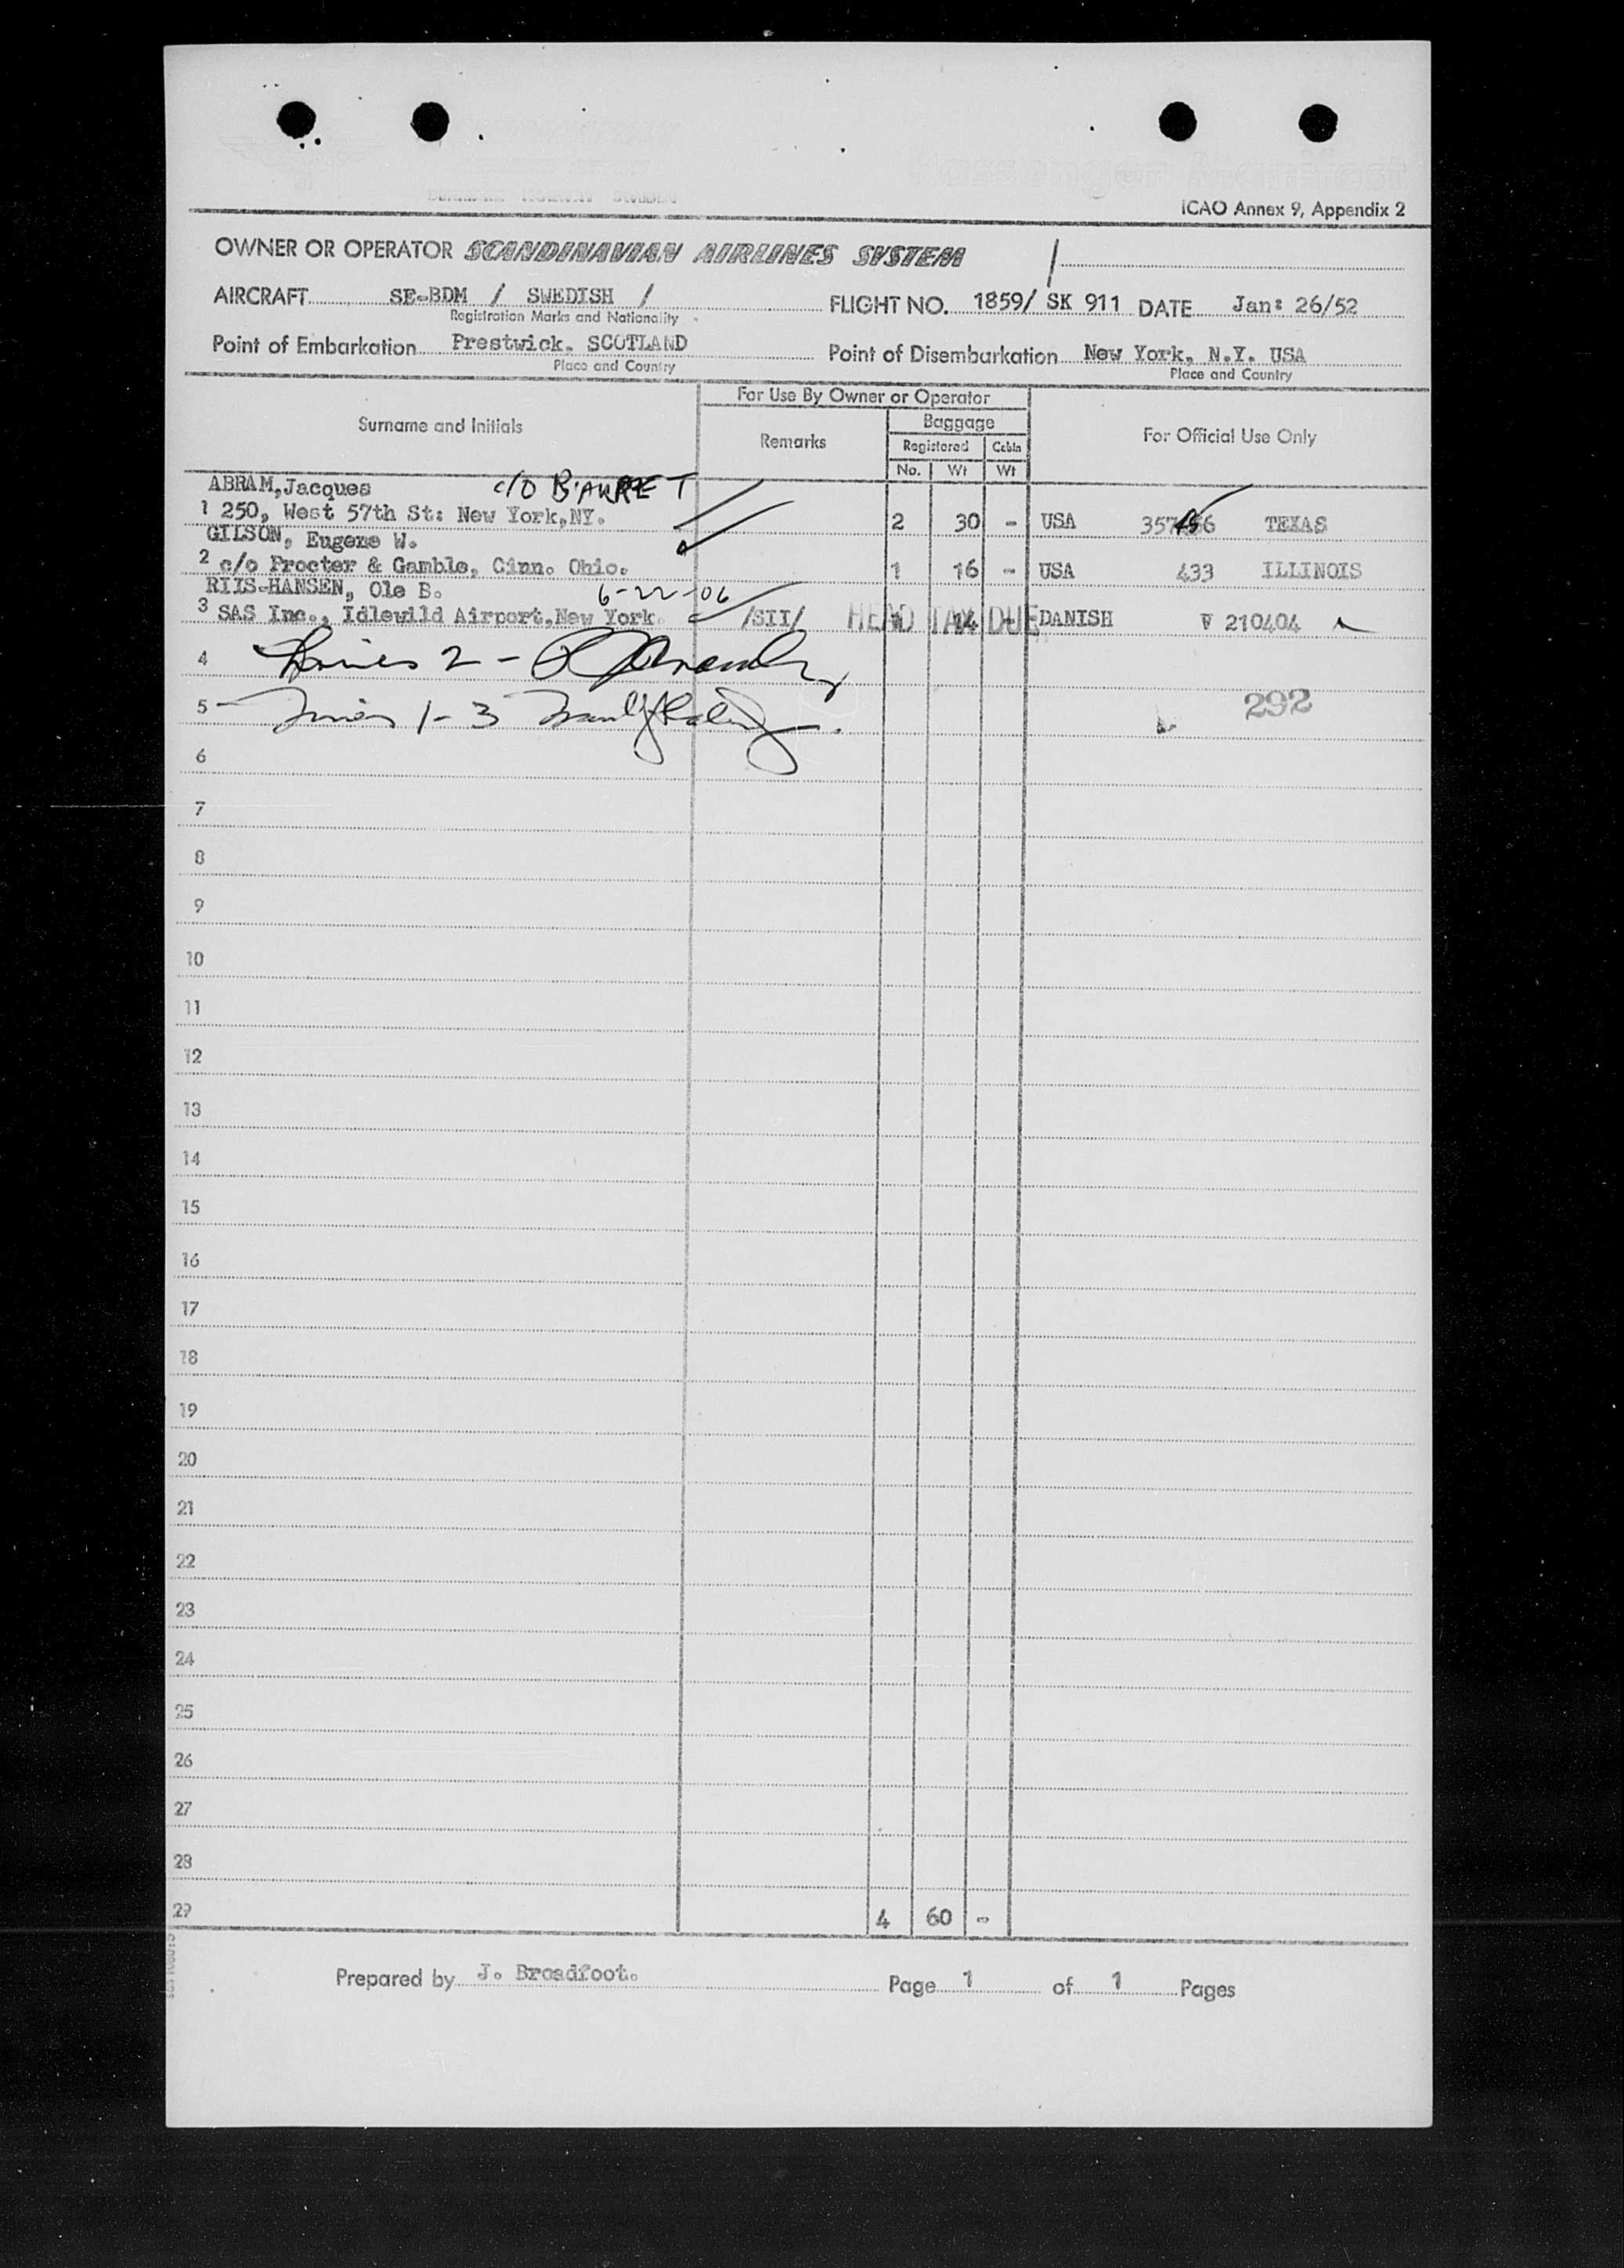 ICAO Annex 9, Appendix 2
OWNER OR OPERATOR SCANDINAVIAN AIRLINES SYSTEM /
AIRCRAFT SE-BDM / SWEDISH / FLIGHT NO. 1859/ SK 911 DATE Jan: 26/52
Registration Marks and Nationality
Point of Embarkation Prestwick. SCOTLAND Point of Disembarkation New York, N.Y. USA
Place and Country Place and Country
For Use By Owner or Operator
Surname and Initials Remarks Baggage For Official Use Only
Registered Cabin
No. Wt Wt
ABRAM, Jacques c/o BARRET
1 250, West 57th St: New York, NY. 2 30 - USA TEXAS
GILSON, Eugene W.
2 c/o Procter & Gamble, Cinn. Ohio. 1 16 - USA 433 ILLINOIS
RIIS-HANSEN, Ole B. 6-22-06
3 SAS Inc., Idlewild Airport, New York. /SII/ HEAD TAX DUE 1 14 - DANISH V 210404
4 2 -
5 1-3 292
6
7
8
9
10
11
12
13
14
15
16
17
18
19
20
21
22
23
24
25
26
27
28
29 4 60 -
Prepared by J. Broadfoot. Page 1 of 1 Pages